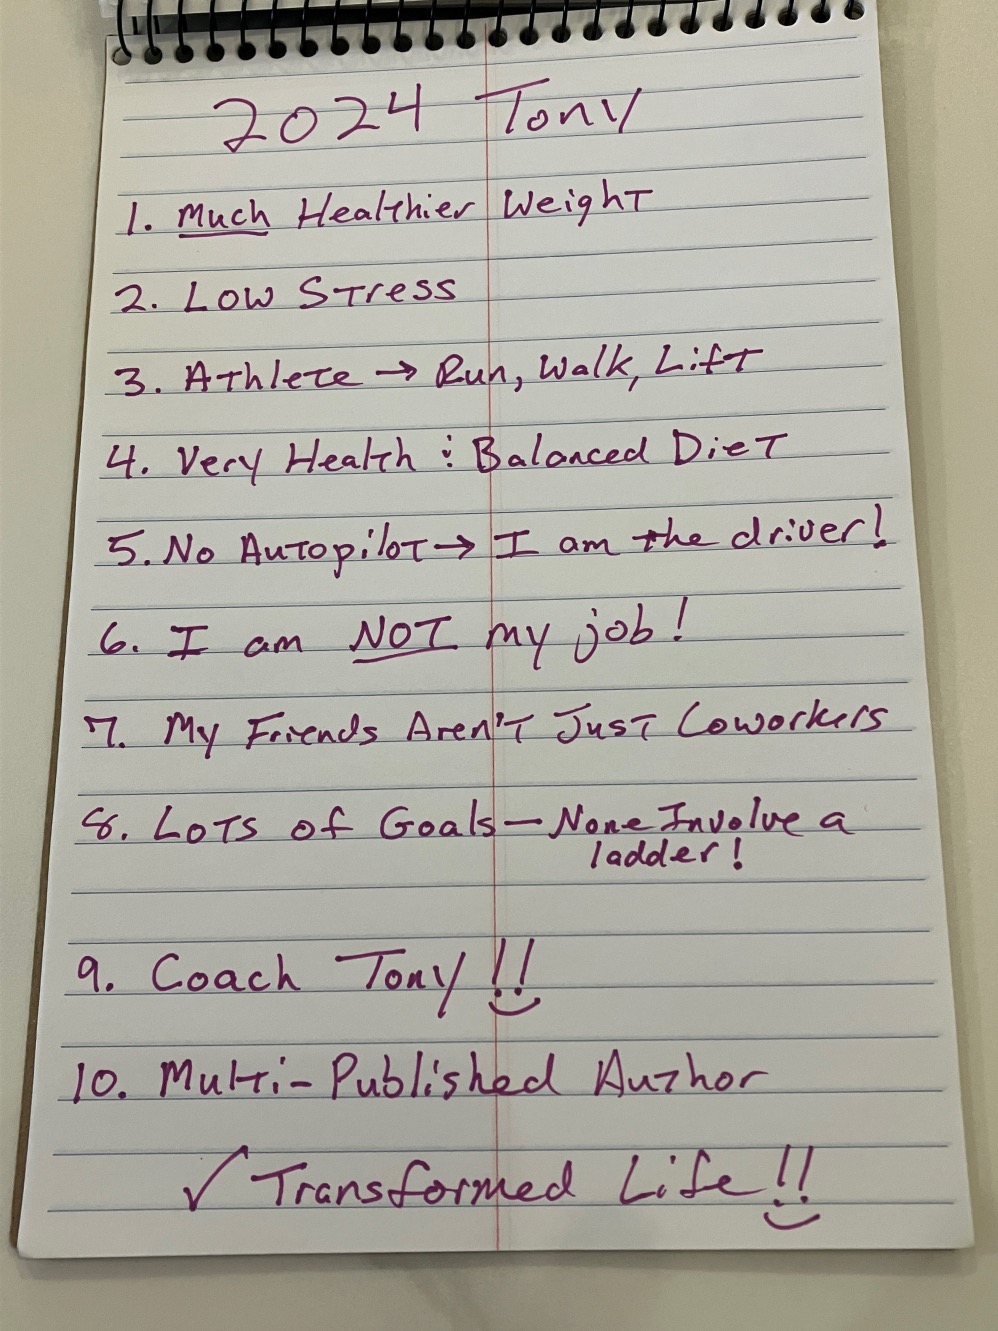 2024 Tony
1. Much Healthier Weight
2. Low Stress
3. Athlete → Run, Walk, Lift
4. Very Health : Balanced Diet
5. No Autopilot → I am the driver!
6. I am NOT my job!
7. My Friends Aren't Just Coworkers
8. Lots of Goals — None Involve a
ladder!
9. Coach Tony!!
10. Multi-Published Author
✓ Transformed Life!!